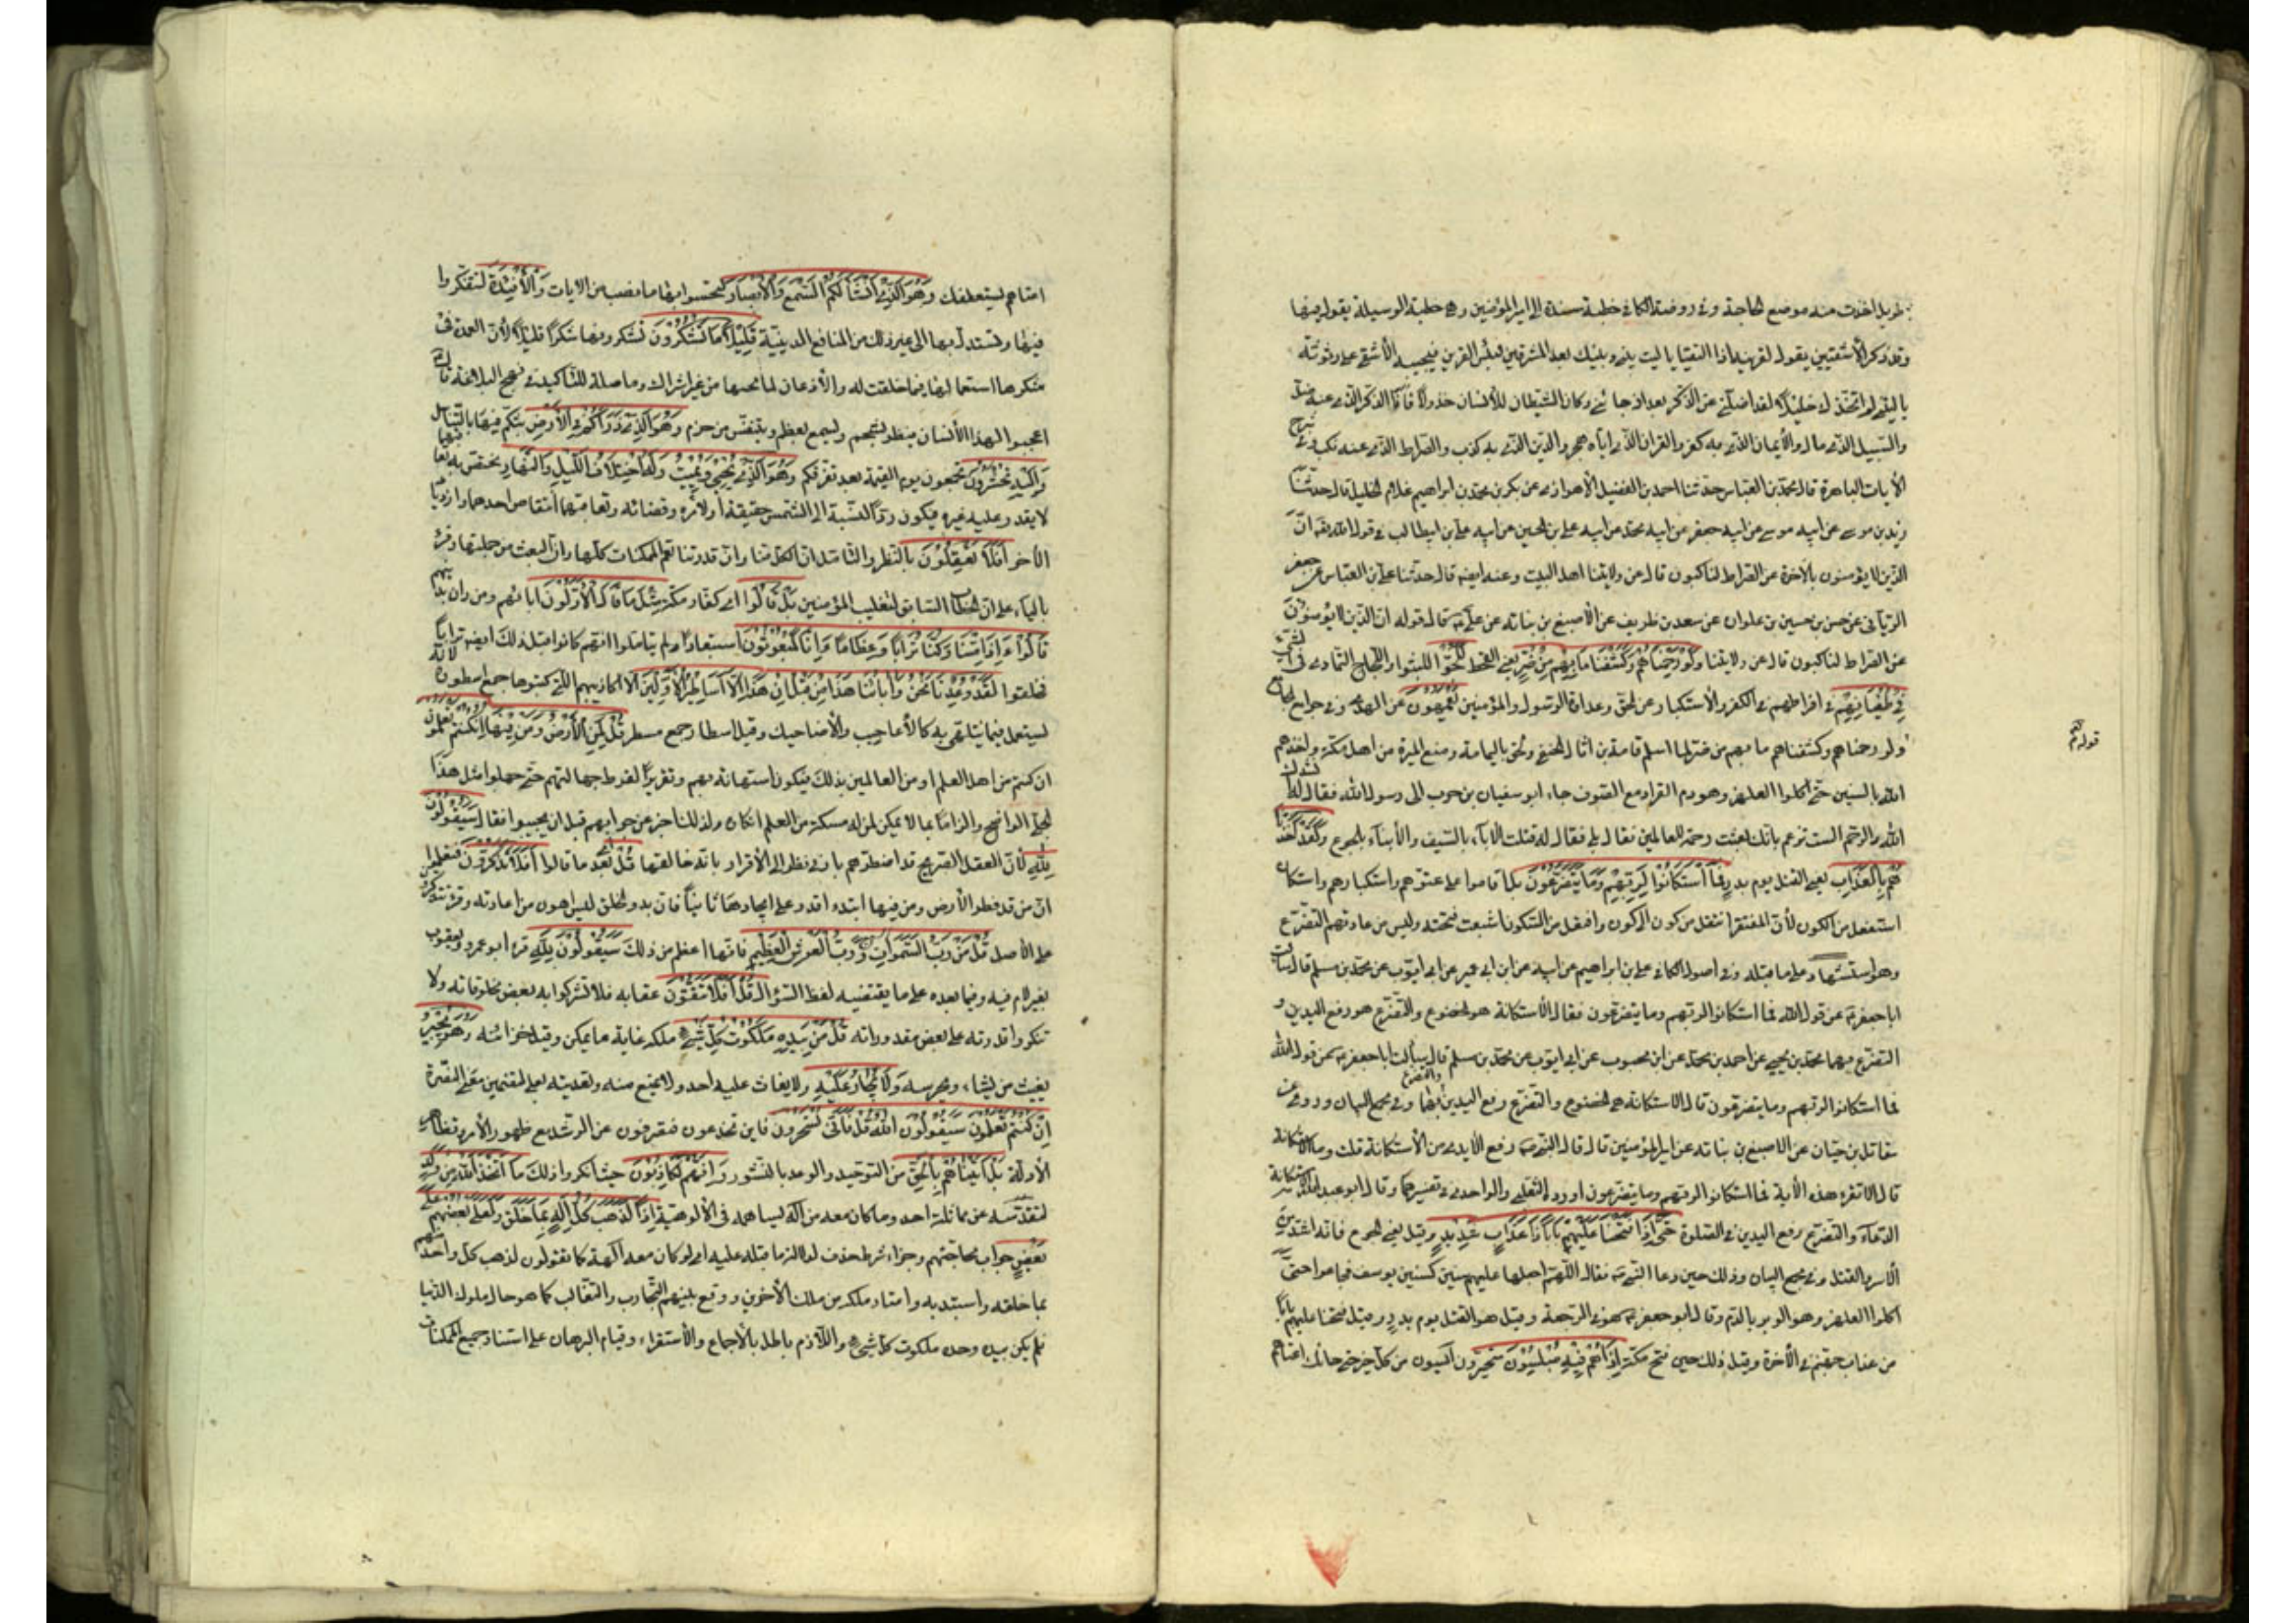 طويل اخذت منه موضع الحاجة وفي روضة الكافي خطبة مسندة الى امير المؤمنين وهي خطبة الوسيلة يقول فيها
وقد ذكر الأشقيين يقول لقرينه اذا التقيا يا ليت بيني وبينك بعد المشرقين فبئس القرين فيجيبه الأشقى على رثوثة
يا ليتني لم اتخذك خليلا لقد اضللتني عن الذكر بعد اذ جائني وكان الشيطان للأنسان خذولا فأنا الذكر الذي عنه ضل
والسبيل الذي عنه مال والأيمان الذي به كفر والقران الذي اياه هجر والدين الذي به كذب والصراط الذي عنه نكب وفي شرح
الأيات الباهرة قال محمد بن العباس حدثنا احمد بن الفضيل الأهوازي عن بكر بن محمد بن ابراهيم غلام الخليل قال حدثنا
زيد بن موسى عن ابيه موسى عن ابيه جعفر عن ابيه محمد عن ابيه علي بن الحسين عن ابيه علي بن ابيطالب في قول الله ان
الذين لا يؤمنون بالأخرة عن الصراط لناكبون قال عن ولايتنا اهل البيت وعنه ايضا قال حدثنا علي بن العباس عن جعفر
الرماني عن حسن بن حسين بن علوان عن سعد بن طريف عن الأصبغ بن نباته عن علي قال قوله ان الذين لا يؤمنون
عن الصراط لناكبون قال عن ولايتنا وَلَوْ رَحِمْنَاهُمْ وَكَشَفْنَا مَا بِهِمْ مِنْ ضُرٍّ يعني القحط لَلَجُّوا اللبثوا واللجاج التمادي في الشئ
فِي طُغْيَانِهِمْ في افراطهم في الكفر والأستكبار عن الحق وعداوة الرسول والمؤمنين يَعْمَهُونَ عن الهدى وفي جوامع الجامع
ولو رحمناهم وكشفناهم ما بهم من ضر لما اسلم ثمامة بن اثال الحنفي ولحق باليمامة ومنع الميرة من اهل مكة واخذهم
الله بالسنين حتى اكلوا العلهز وهو دم القراد مع الصوف جاء ابو سفيان بن حرب الى رسول الله فقال له انشدك
الله والرحم الست تزعم بانك بعثت رحمة للعالمين فقال بلى فقال له قتلت الآباء بالسيف والأبناء بالجوع وَلَقَدْ أَخَذْنَا
هُمْ بِالْعَذَابِ يعني القتل يوم بدر فَمَا اسْتَكَانُوا لِرَبِّهِمْ وَمَا يَتَضَرَّعُونَ بل اقاموا على عتوهم واستكبارهم واستكان
استفعل من الكون لأن المفتقر انتقل من كون الى كون وافتعل من السكون اشبعت فتحته وليس من عادتهم التضرع
وهو استشهاد على ما قبله وفي اصول الكافي علي بن ابراهيم عن ابيه عن ابن ابي عمير عن ابي ايوب عن محمد بن مسلم قال سألت
ابا جعفر عن قول الله فما استكانوا لربهم وما يتضرعون فقال الاستكانة هو الخضوع والتضرع هو رفع اليدين و
التضرع بهما محمد بن يحيى عن احمد بن محمد عن ابن محبوب عن ابي ايوب عن محمد بن مسلم قال سألت ابا جعفر عن قول الله
فما استكانوا لربهم وما يتضرعون قال الاستكانة هي الخضوع والتضرع رفع اليدين والتضرع بهما وفي مجمع البيان وروي عن
مقاتل بن حيان عن الاصبغ بن نباته عن امير المؤمنين قال قال النبي رفع الأيدي من الأستكانة قلت وما الاستكانة
قال الا تقرء هذه الأية فما استكانوا لربهم وما يتضرعون اورده الثعلبي والواحدي في تفسيرهما وقال ابو عبدالله الاستكانة
الدعاء والتضرع رفع اليدين في الصلوة حَتَّى إِذَا فَتَحْنَا عَلَيْهِمْ بَابًا ذَا عَذَابٍ شَدِيدٍ وقيل يعني الجوع فانه اشد من
الاسر والقتل وفي مجمع البيان وذلك حين دعا النبي فقال اللهم اجعلها عليهم سنين كسنين يوسف فجاعوا حتى
اكلوا العلهز وهو الوبر بالدم وقال ابو جعفر هو في الرجعة وقيل هو القتل يوم بدر وقيل فتحنا عليهم بابا
من عذاب جهنم في الأخرة وقيل ذلك حين فتح مكة إِذَا هُمْ فِيهِ مُبْلِسُونَ متحيرون آيسون من كل خير حتى جاءك اعتاهم
قوله
امتاهم ليستعطفك وَهُوَ الَّذِي أَنْشَأَ لَكُمُ السَّمْعَ وَالْأَبْصَارَ لتحسوا بها ما نصب من الايات وَالْأَفْئِدَةَ لتتفكروا
فيها وتستدلوا بها الى غير ذلك من المنافع الدينية قَلِيلًا مَا تَشْكُرُونَ تشكرونها شكرا قليلا لأن العمدة في
شكرها استعمالها فيما خلقت له والأذعان لمانحها من غير اشراك وما صلة للتأكيد في نهج البلاغة قال
اعجبوا لهذا الأنسان ينظر بشحم ويسمع بعظم ويتنفس من خرم وَهُوَ الَّذِي ذَرَأَكُمْ فِي الْأَرْضِ بثكم فيها بالتناسل
وَإِلَيْهِ تُحْشَرُونَ تجمعون يوم القيمة بعد تفرقكم وَهُوَ الَّذِي يُحْيِي وَيُمِيتُ وَلَهُ اخْتِلَافُ اللَّيْلِ وَالنَّهَارِ يختص به تعاقبهما
لا يقدر عليه غيره فيكون ردا لنسبته الى الشمس حقيقة او لأمره وقضائه وتعاقبهما انتقاص احدهما وازدياد
الأخر أَفَلَا تَعْقِلُونَ بالنظر والتأمل ان الكل منا وان قدرتنا تعم الممكنات كلها وان البعث من جملتها وقرئ
بالياء على ان الخطاب السابق لتغليب المؤمنين بَلْ قَالُوا اي كفار مكة مِثْلَ مَا قَالَ الْأَوَّلُونَ اباؤهم ومن دان بدينهم
قَالُوا ءَإِذَا مِتْنَا وَكُنَّا تُرَابًا وَعِظَامًا ءَإِنَّا لَمَبْعُوثُونَ استبعادا ولم يتاملوا انهم كانوا قبل ذلك ايضا ترابا
فخلقوا لَقَدْ وُعِدْنَا نَحْنُ وَآبَاؤُنَا هَذَا مِنْ قَبْلُ إِنْ هَذَا إِلَّا أَسَاطِيرُ الْأَوَّلِينَ الا اكاذيبهم التي كتبوها جمع اسطورة لانه
يستعمل فيما يتلهى به كالأعاجيب والأضاحيك وقيل اسطار جمع سطر قُلْ لِمَنِ الْأَرْضُ وَمَنْ فِيهَا إِنْ كُنْتُمْ تَعْلَمُونَ
ان كنتم من اهل العلم او من العالمين بذلك فيكون استهانة بهم وتقريرا لفرط جهالتهم حتى جهلوا مثل هذا
الجلي الواضح والزاما بما لا يمكن لمن له مسكة من العلم انكاره ولذلك اخبر عن جوابهم قبل ان يجيبوا فقال سَيَقُولُونَ
لِلَّهِ لأن العقل الصريح قد اضطرهم بادنى نظر الى الأقرار بانه خالقها قُلْ بعد ما قالوا أَفَلَا تَذَكَّرُونَ فتعلمون
ان من قدر فطر الأرض ومن فيها ابتداء اقدر على ايجادها ثانيا فان بدو الخلق ليس اهون من اعادته وقرئ تتذكرون
على الأصل قُلْ مَنْ رَبُّ السَّمَوَاتِ وَرَبُّ الْعَرْشِ الْعَظِيمِ فانها اعظم من ذلك سَيَقُولُونَ لِلَّهِ قرء ابو عمرو ويعقوب
بغير لام فيه وفيما بعده على ما يقتضيه لفظ السؤال قُلْ أَفَلَا تَتَّقُونَ عقابه فلا تشركوا به بعض مخلوقاته ولا
تنكروا قدرته على بعض مقدوراته قُلْ مَنْ بِيَدِهِ مَلَكُوتُ كُلِّ شَيْءٍ ملكه غاية ما يمكن وقيل خزائنه وَهُوَ يُجِيرُ
يغيث من يشاء ويحرسه وَلَا يُجَارُ عَلَيْهِ ولا يغاث عليه احد ولا يمنع منه وتعديته بعلى لتضمين معنى النصرة
إِنْ كُنْتُمْ تَعْلَمُونَ سَيَقُولُونَ اللَّهُ قُلْ فَأَنَّى تُسْحَرُونَ فاين تخدعون فتصرفون عن الرشد مع ظهور الأمر وتظاهر
الأدلة بَلْ أَتَيْنَاهُمْ بِالْحَقِّ من التوحيد والوعد بالنشور وَإِنَّهُمْ لَكَاذِبُونَ حيث انكروا ذلك مَا اتَّخَذَ اللَّهُ مِنْ وَلَدٍ
لتقدسه عن مماثلة احد وما كان معه من اله يساهمه في الألوهية إِذًا لَذَهَبَ كُلُّ إِلَهٍ بِمَا خَلَقَ وَلَعَلَا بَعْضُهُمْ عَلَى
بَعْضٍ جواب محاجتهم وجزاء شرط حذف لدلالة ما قبله عليه اي لو كان معه الهة كما تقولون لذهب كل واحد منهم
بما خلقه واستبد به وامتاز ملكه من ملك الأخرين ووقع بينهم التحارب والتغالب كما هو حال ملوك الدنيا
فلم يكن بيده وحده ملكوت كل شئ واللازم باطل بالأجماع والأستقراء وقيام البرهان على استناد جميع الممكنات